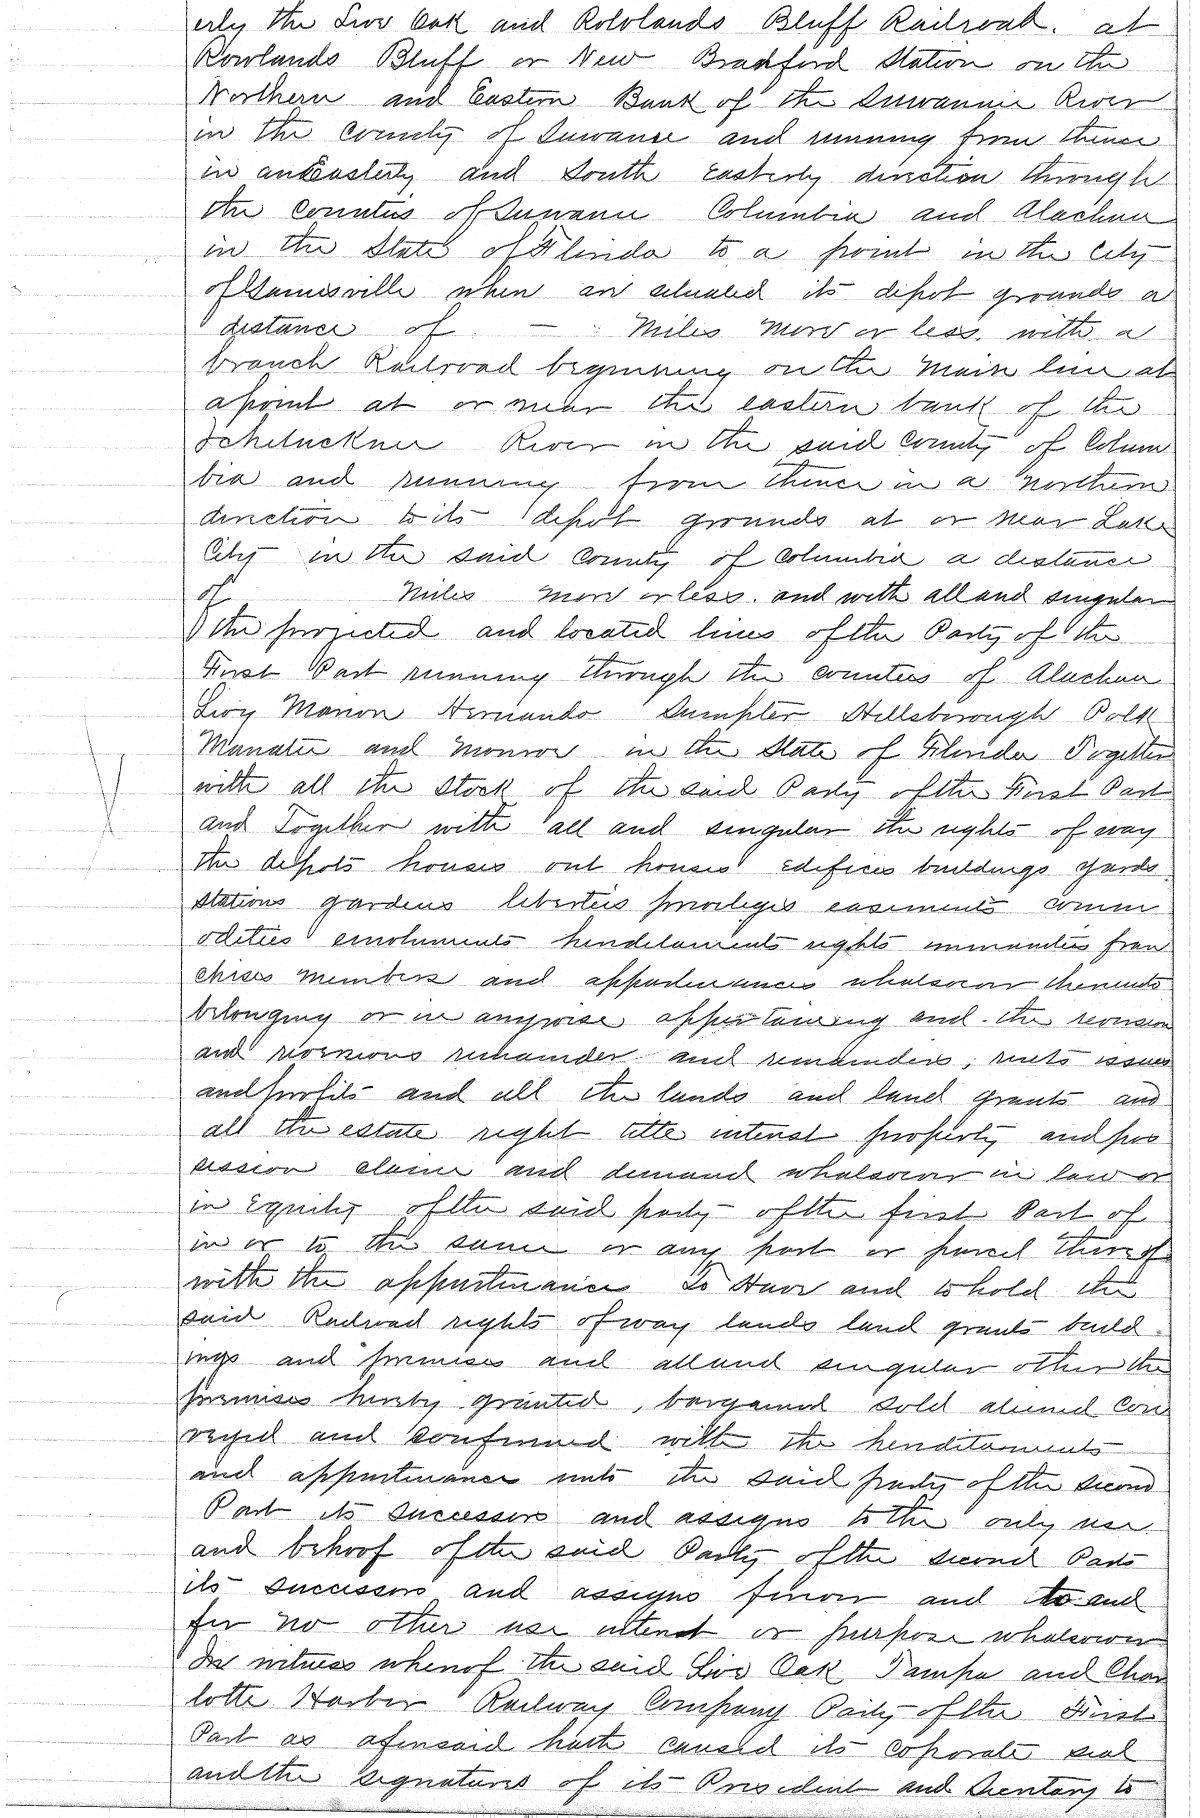 erly the Live Oak and Rowlands Bluff Railroad. at
Rowlands Bluff or New Bradford Station on the
Northern and Eastern Bank of the Suwannee River
in the County of Suwanee and running from thence
in an Easterly and South Easterly direction through
the Counties of Suwanee Columbia and Alachua
in the State of Florida to a point in the City
of Gainesville where are situated its depot grounds a
distance of — Miles More or less. with a
branch Railroad beginning on the Main line at
a point at or near the eastern bank of the
Ichetucknee River in the said County of Colum
bia and running from thence in a Northern
direction to its depot grounds at or near Lake
City in the said County of Columbia a distance
of Miles More or less. and with all and singular
the projected and located lines of the Party of the
First Part running through the counties of Alachua
Levy Marion Hernando Sumpter Hillsborough Polk
Manatee and Monroe in the State of Florida Together
with all the Stock of the said Party of the First Part
and Together with all and singular the rights of way
the depots houses out houses Edifices buildings yards
stations gardens liberties privileges easements comm
odities emoluments hereditaments rights immunities fran
chises members and appurtenances whatsoever thereunto
belonging or in anywise appertaining and the reversion
and reversions remainder and remainders, rents issues
and profits and all the lands and land grants and
all the estate right title interest property and pos
session claim and demand whatsoever in law or
in Equity of the said party of the first Part of
in or to the same or any part or parcel thereof
with the appurtenances To Have and to hold the
said Railroad rights of way lands land grants build
ings and premises and all and singular other the
premises hereby granted, bargained sold aliened Con
veyed and confirmed with the hereditaments
and appurtenances unto the said party of the second
Part its Successors and assigns to the only use
and behoof of the said Party of the second Part
its successors and assigns forever and to and
for no other use intent or purpose whatsoever
In witness whereof the said Live Oak Tampa and Char
lotte Harbor Railway Company Party of the First
Part as aforesaid hath caused its coporate seal
and the signatures of its President and Secretary to